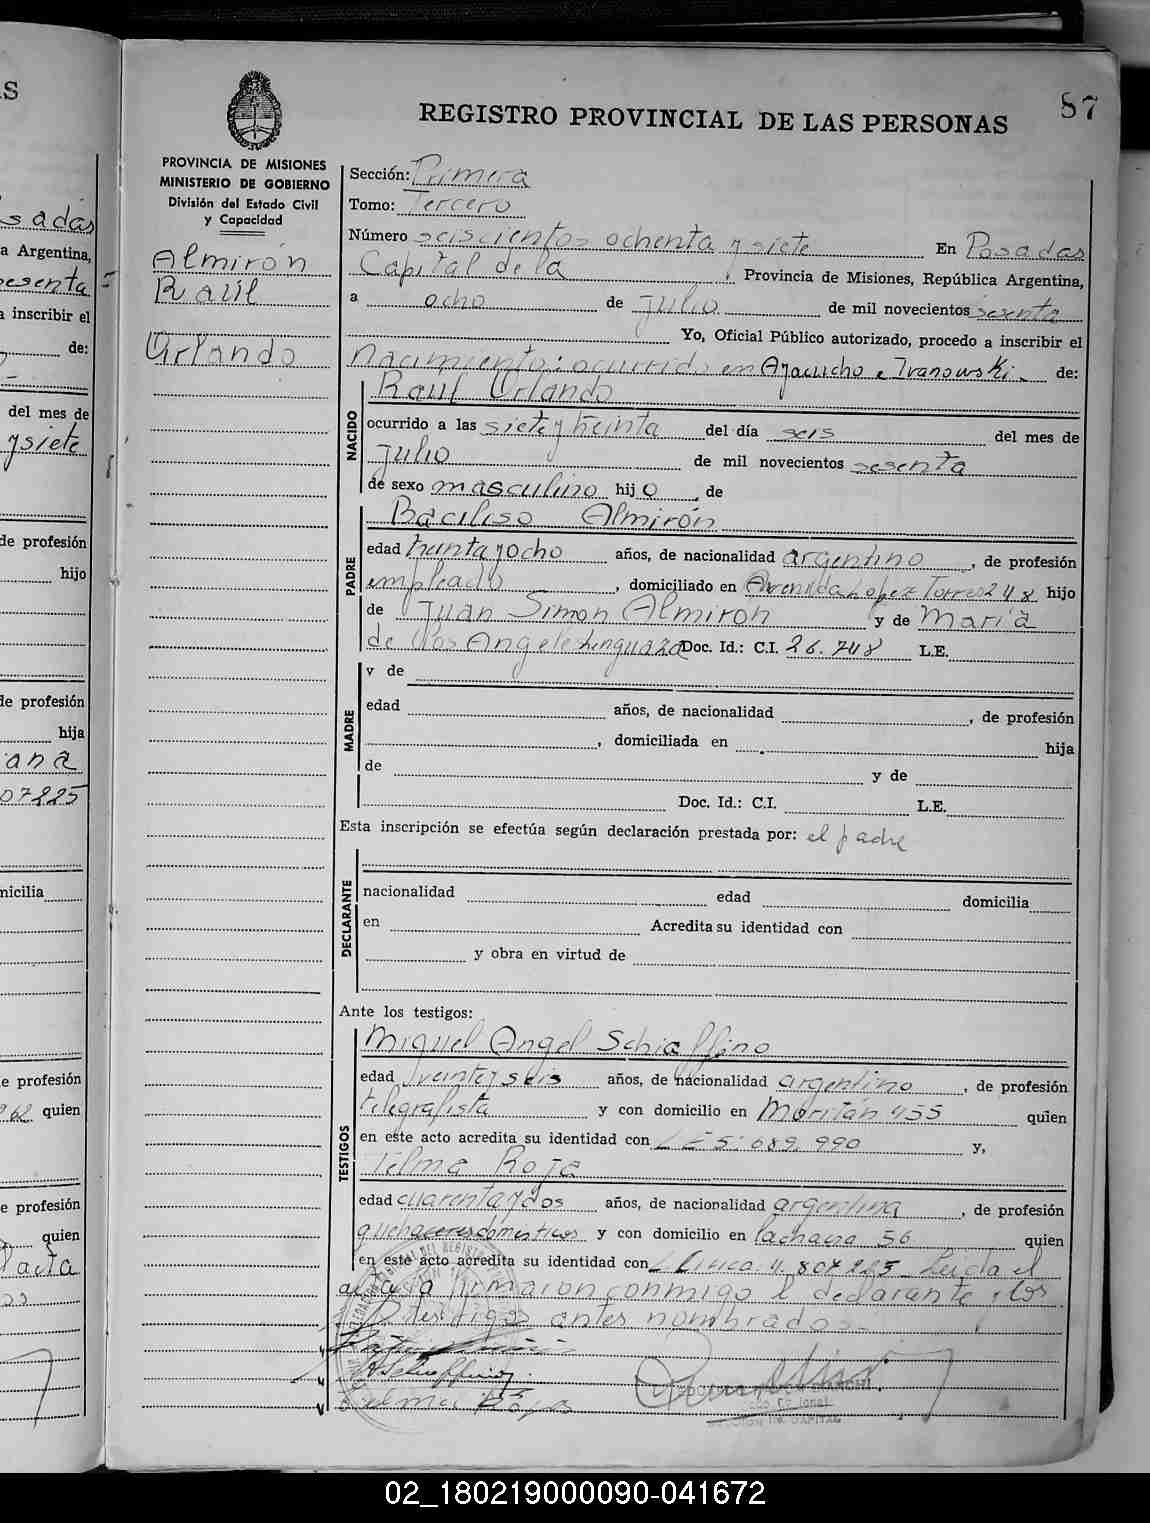 REGISTRO PROVINCIAL DE LAS PERSONAS
87
PROVINCIA DE MISIONES
MINISTERIO DE GOBIERNO
División del Estado Civil
y Capacidad
Almirón
Raúl
Orlando
Sección: Primera
Tomo: Tercero
Número seiscientos ochenta y siete En Posadas
Capital de la , Provincia de Misiones, República Argentina,
a ocho de Julio de mil novecientos sesenta
Yo, Oficial Público autorizado, procedo a inscribir el
Nacimiento: ocurrido en Ayacucho e Ivanowski. de:
NACIDO
Raúl Orlando
ocurrido a las siete y treinta del día seis del mes de
Julio de mil novecientos sesenta
de sexo masculino hijo, de
PADRE
Baciliso Almirón
edad treinta y ocho años, de nacionalidad argentino, de profesión
empleado, domiciliado en Avenida Lopez Torres 248 hijo
de Juan Simon Almirón y de María
de los Angeles Doc. Id.: C.I. 26.748 L.E.
MADRE
y de
edad años, de nacionalidad , de profesión
, domiciliada en hija
de y de
Doc. Id.: C.I. L.E.
Esta inscripción se efectúa según declaración prestada por: el padre
DECLARANTE
nacionalidad edad domicilia
en Acredita su identidad con
y obra en virtud de
Ante los testigos:
TESTIGOS
Miguel Angel Schiaffino
edad veinte y seis años, de nacionalidad argentino, de profesión
telegrafista y con domicilio en 455 quien
en este acto acredita su identidad con L E 5.689.990 y,
Telma Roja
edad cuarenta y dos años, de nacionalidad argentina, de profesión
quehaceres domésticos y con domicilio en la chacra 56 quien
en este acto acredita su identidad con L Leida el
acta firmaron conmigo el declarante y los
testigos antes nombrados.
Telma Rojas
02_180219000090-041672